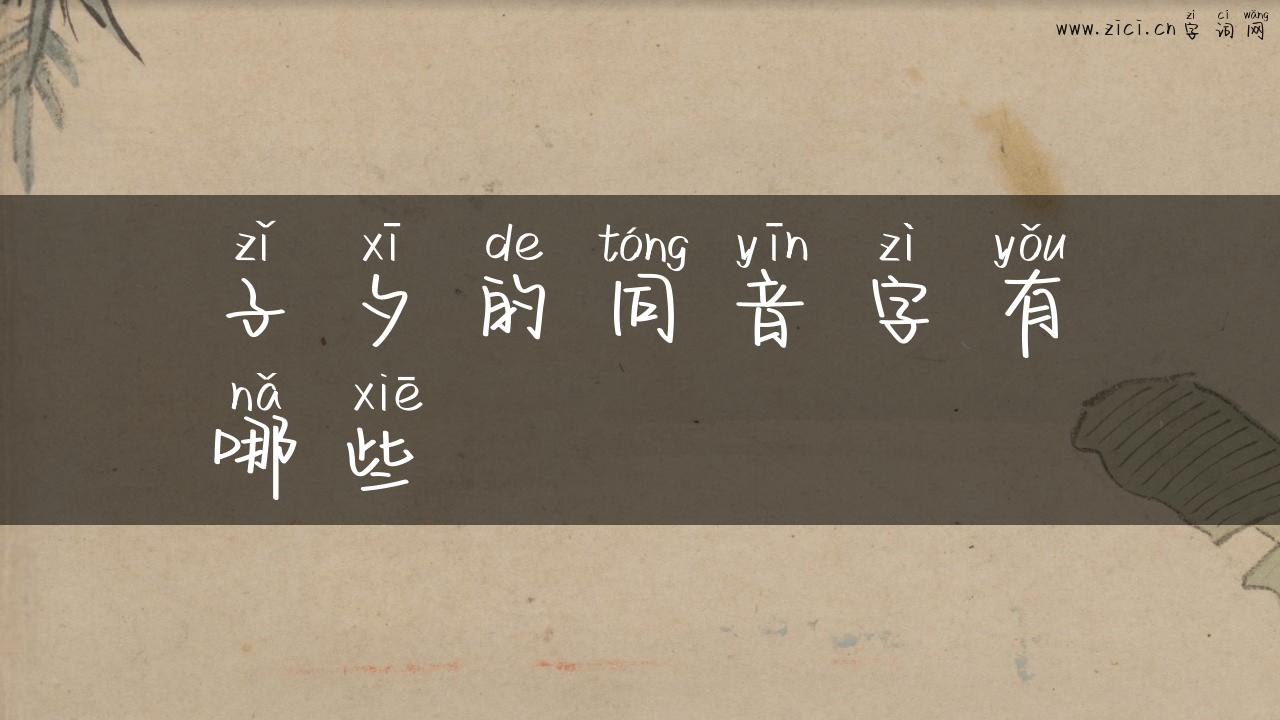 zì cí wǎng
www.zici.cn 字 词 网
zǐ xī de tóng yīn zì yǒu
子 夕 的 同 音 字 有
nǎ xiē
哪 些